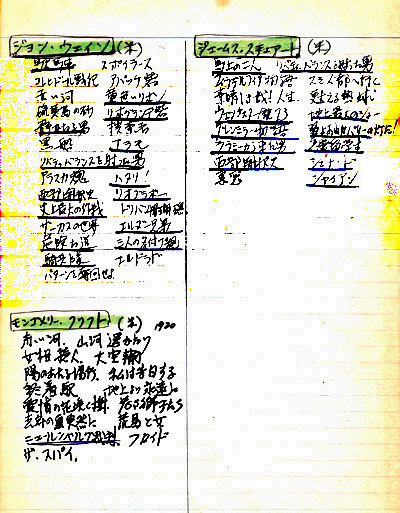 ジョン・ウェイン (米)
駅馬車 スポイラース
コレヒドール戦記 アパッチ砦
赤い河 黄色いリボン
硫黄島の砂 リオグランデ砦
静かなる男 捜索者
黒船 アラモ
リバティ・バランスを射った男
アラスカ魂 ハタリ!
西部開拓史 リオブラボー
史上最大の作戦 ドノバン珊瑚礁
サーカスの世界 エルダー兄弟
危険な道
騎兵隊 エルドラド
ジェームス・スチュアート (米)
馬上の二人 リバティ・バランスを射った男
フィラデルフィヤ物語 スミス都へ行く
素晴しき哉!人生 甦える熱球
ウィンチェスター銃73 地上最大のショー
グレンミラー物語
ララミーから来た男
西部開拓史 シェナンドー
裏窓 シャイアン
モンゴメリー・クリフト (米) 1920
赤い河、山河遥かなり
女相続人、大空輸
陽のあたる場所、私は告白する
終着駅 地上より永遠に
愛情の花咲く樹 若き獅子たち
去年の夏突然に 荒馬と女
ニュールンベルグ裁判、フロイド
ザ・スパイ、